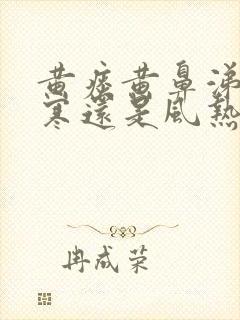 黄痰黄鼻涕
寒還是風熱
冉成荣